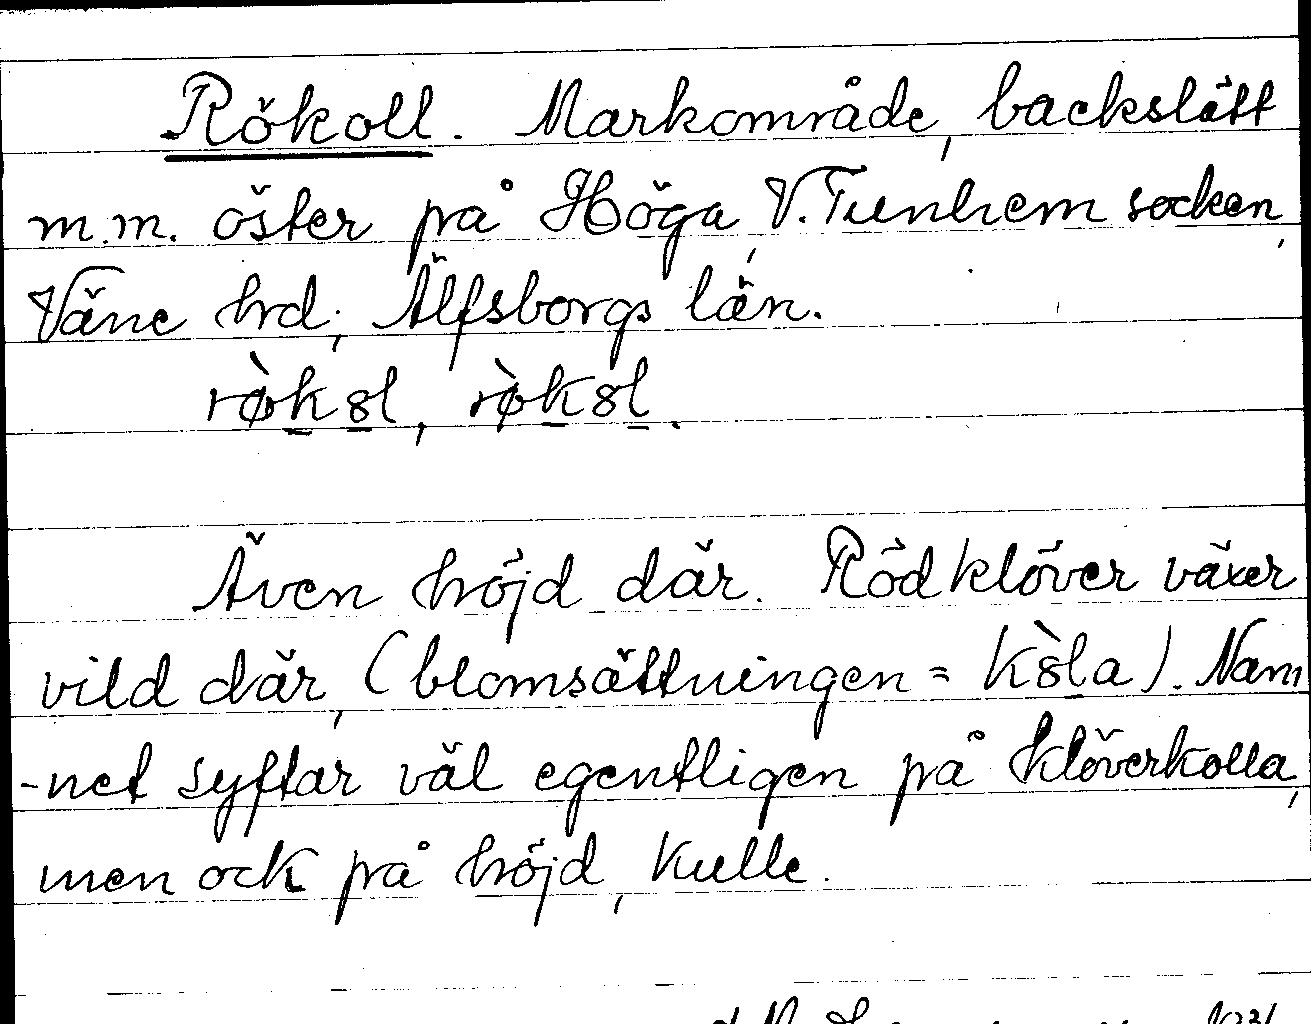 Rökoll. Markområde, backslätt
m.m. öster på Höga, V. Tunhem socken,
Väne hrd, Älfsborgs län.
rø̀k8l, rø̀k8l.
Även höjd där. Rödklöver växer
vild där, (blomsättningen = k8̀la). Nam
-net syftar väl egentligen på klöverkolla,
men ock på höjd, kulle.